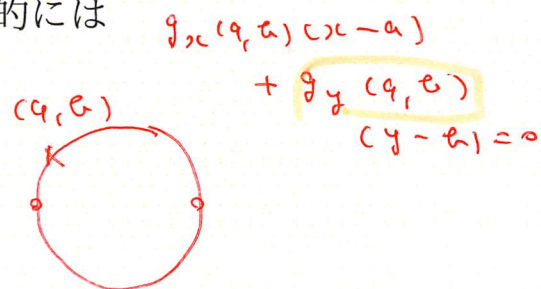 的には
g_x(a,b)(x-a)
+ g_y(a,b)
(y-b)=0
(a,b)